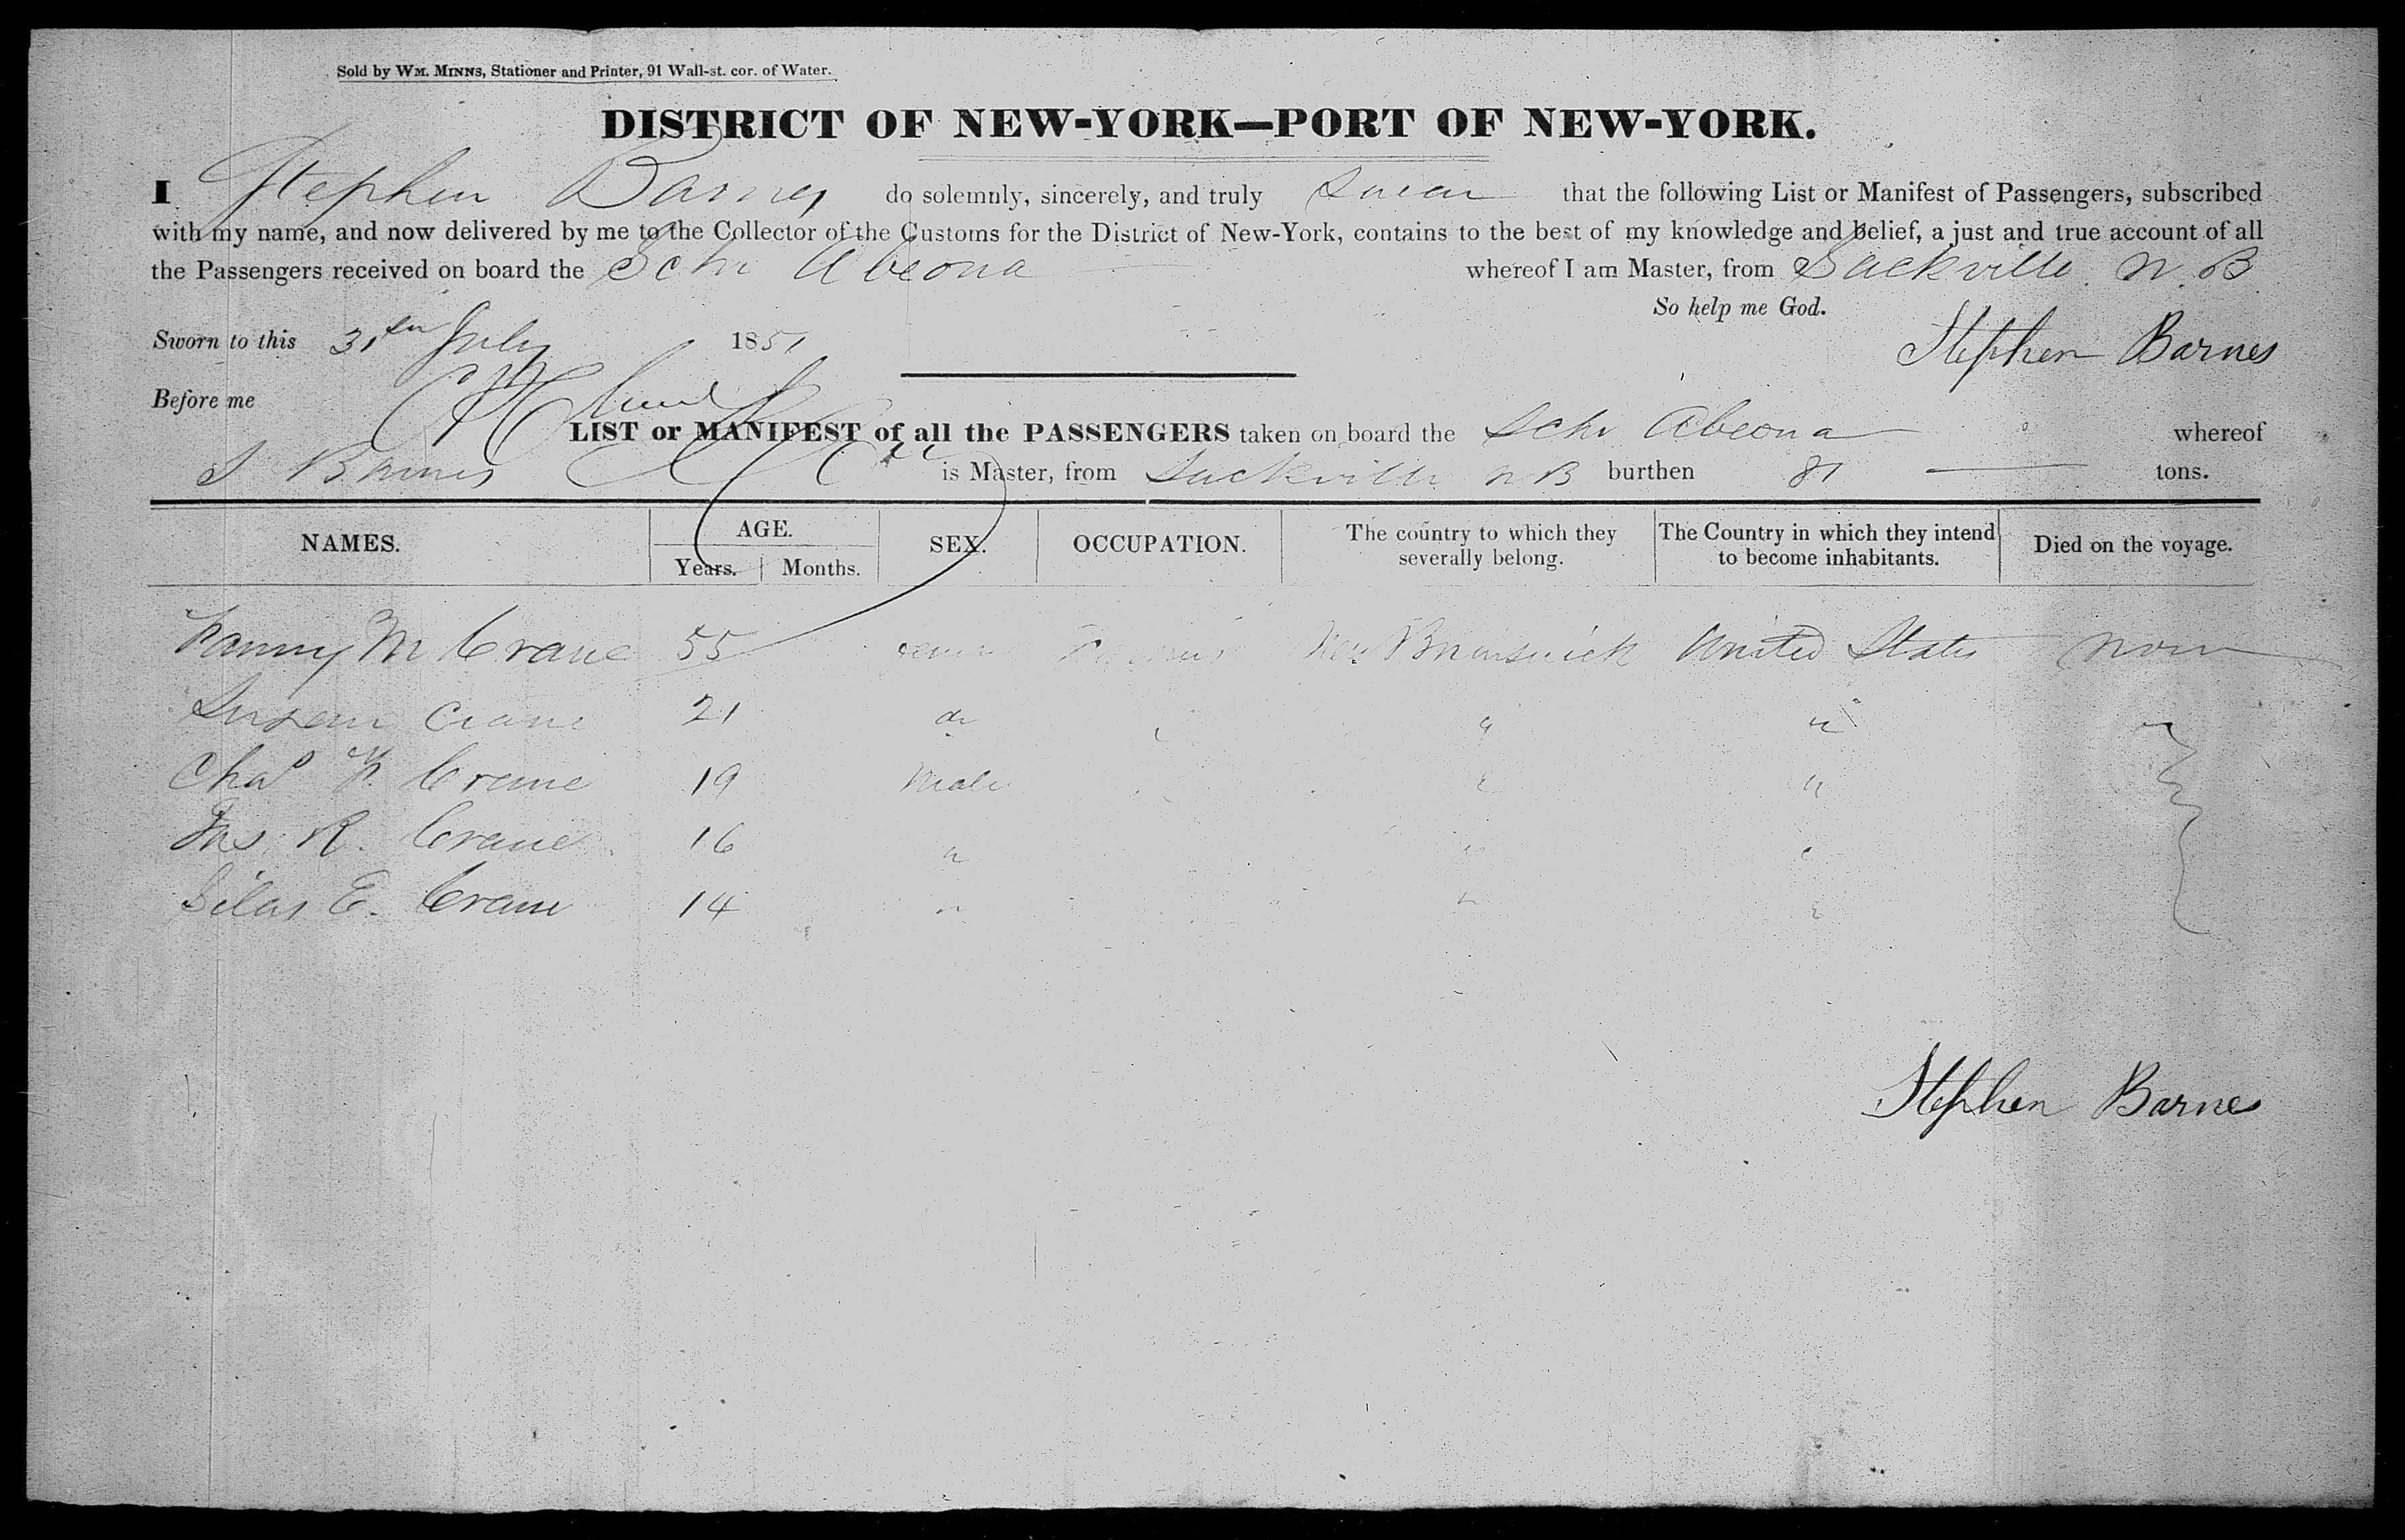 Sold by WM. MINNS, Stationer and Printer, 91 Wall-st. cor. of Water.
DISTRICT OF NEW-YORK—PORT OF NEW-YORK.
I Stephen Barnes do solemnly, sincerely, and truly swear that the following List or Manifest of Passengers, subscribed
with my name, and now delivered by me to the Collector of the Customs for the District of New-York, contains to the best of my knowledge and belief, a just and true account of all
the Passengers received on board the Schr Abeona whereof I am Master, from Sackville N. B
So help me God.
Sworn to this 31st July 1851 Stephen Barnes
Before me
LIST or MANIFEST of all the PASSENGERS taken on board the Schr Abeona whereof
S Barnes is Master, from Sackville N B burthen 81 tons.
NAMES. AGE. SEX. OCCUPATION. The country to which they severally belong. The Country in which they intend to become inhabitants. Died on the voyage.
Years. Months.
Fanny M Crane 55 New Brunswick United States None
Susan Crane 21 do " "
Chas F. Crane 19 Male " "
Jas R. Crane 16 " " "
Silas E. Crane 14 " " "
Stephen Barnes